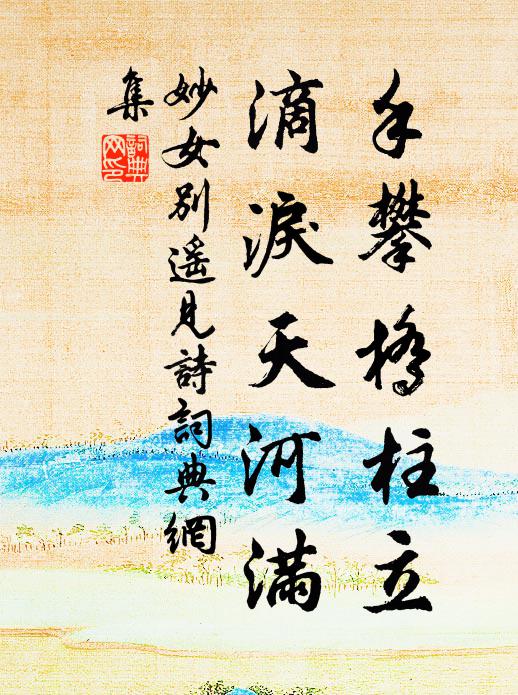 手攀橋柱立
滴淚天河滿
妙女別遥見詩詞典網
集
詞典網印